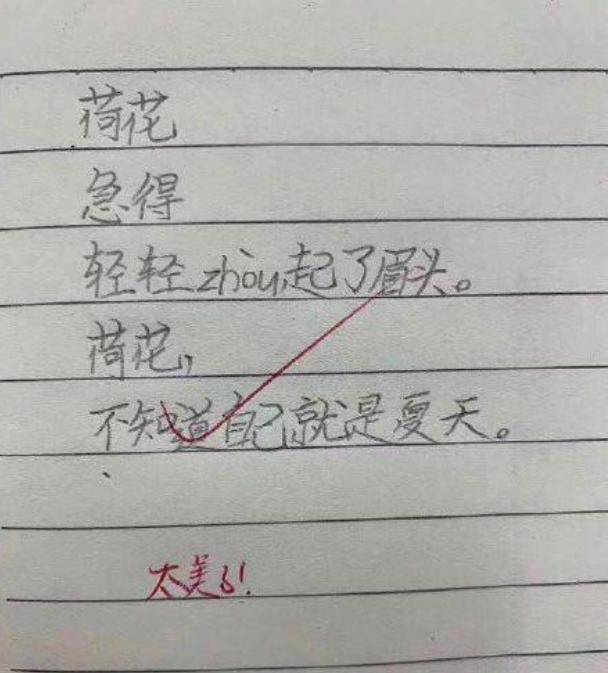 荷花
急得
轻轻zhòu起了眉头。
荷花，
不知道自己就是夏天。
太美了！